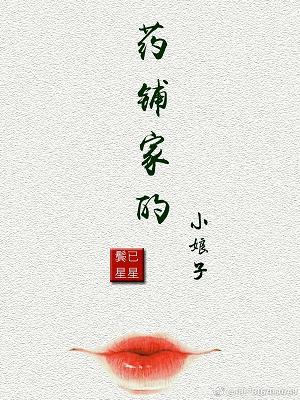 药铺家的
小娘子
已星
鬓星